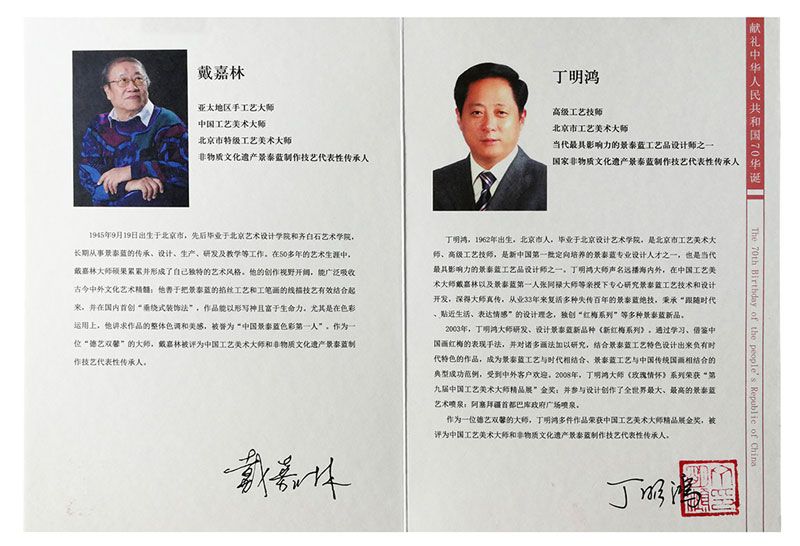 戴嘉林
亚太地区手工艺大师
中国工艺美术大师
北京市特级工艺美术大师
非物质文化遗产景泰蓝制作技艺代表性传承人
1945年9月19日出生于北京市，先后毕业于北京艺术设计学院和齐白石艺术学院，
长期从事景泰蓝的传承、设计、生产、研发及教学等工作。在50多年的艺术生涯中，
戴嘉林大师硕果累累并形成了自己独特的艺术风格。他的创作视野开阔，能广泛吸收
古今中外文化艺术精髓；他善于把景泰蓝的掐丝工艺和工笔画的线描技艺有效结合起
来，并在国内首创“垂绕式装饰法”，作品能以形写神且富于生命力。尤其是在色彩
运用上，他讲求作品的整体色调和美感，被誉为“中国景泰蓝色彩第一人”。作为一
位“德艺双馨”的大师，戴嘉林被评为中国工艺美术大师和非物质文化遗产景泰蓝制
作技艺代表性传承人。
戴嘉林
丁明鸿
高级工艺技师
北京市工艺美术大师
当代最具影响力的景泰蓝工艺品设计师之一
国家非物质文化遗产景泰蓝制作技艺代表性传承人
丁明鸿，1962年出生，北京市人，毕业于北京设计艺术学院，是北京市工艺美术大
师、高级工艺技师，是新中国第一批定向培养的景泰蓝专业设计人才之一，也是当代
最具影响力的景泰蓝工艺品设计师之一。丁明鸿大师声名远播海内外，在中国工艺美
术大师戴嘉林以及景泰蓝第一人张同禄大师等亲授下专心研究景泰蓝工艺技术和设计
开发，深得大师真传，从业33年来复活多种失传百年的景泰蓝绝技，秉承“跟随时代
、贴近生活、表达情感”的设计理念，独创“红梅系列”等多种景泰蓝新品。
2003年，丁明鸿大师研发、设计景泰蓝新品种《新红梅系列》。通过学习、借鉴中
国画红梅的表现手法，并对诸多画法加以研究，结合景泰蓝工艺特色设计出来负有时
代特色的作品，成为景泰蓝工艺与时代相结合、景泰蓝工艺与中国传统国画相结合的
典型成功范例，受到中外客户欢迎。2008年，丁明鸿大师《玫瑰情怀》系列荣获“第
九届中国工艺美术大师精品展”金奖；并参与设计创作了全世界最大、最高的景泰蓝
艺术喷泉：阿塞拜疆首都巴库政府广场喷泉。
作为一位德艺双馨的大师，丁明鸿多件作品荣获中国工艺美术大师精品展金奖，被
评为中国工艺美术大师和非物质文化遗产景泰蓝制作技艺代表性传承人。
丁明鸿
献礼中华人民共和国70华诞
The 70th Birthday of the people's Republic of China